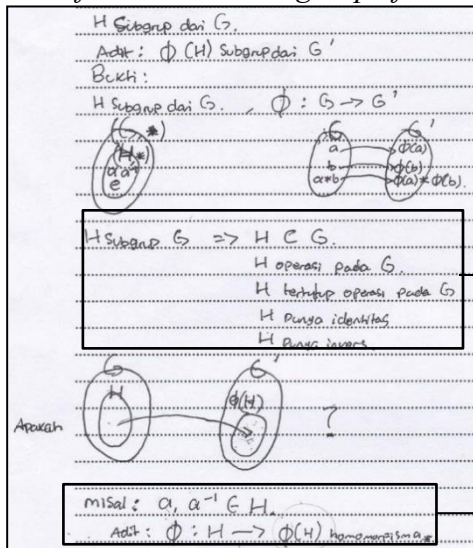 H Subgrup dari G.
Adit: ϕ(H) Subgrup dari G'
Bukti:
H Subgrup dari G. , ϕ: G → G'
(G *) G G'
(H *) a ϕ(a)
a a⁻¹ b ϕ(b)
e a*b ϕ(a) * ϕ(b).
H Subgrup G => H ⊂ G.
H operasi pada G.
H tertutup operasi pada G
H Punya identitas
H Punya invers
G G'
H ϕ(H)
Apakah ?
misal: a, a⁻¹ ∈ H.
Adit: ϕ: H → ϕ(H) homomorpisma